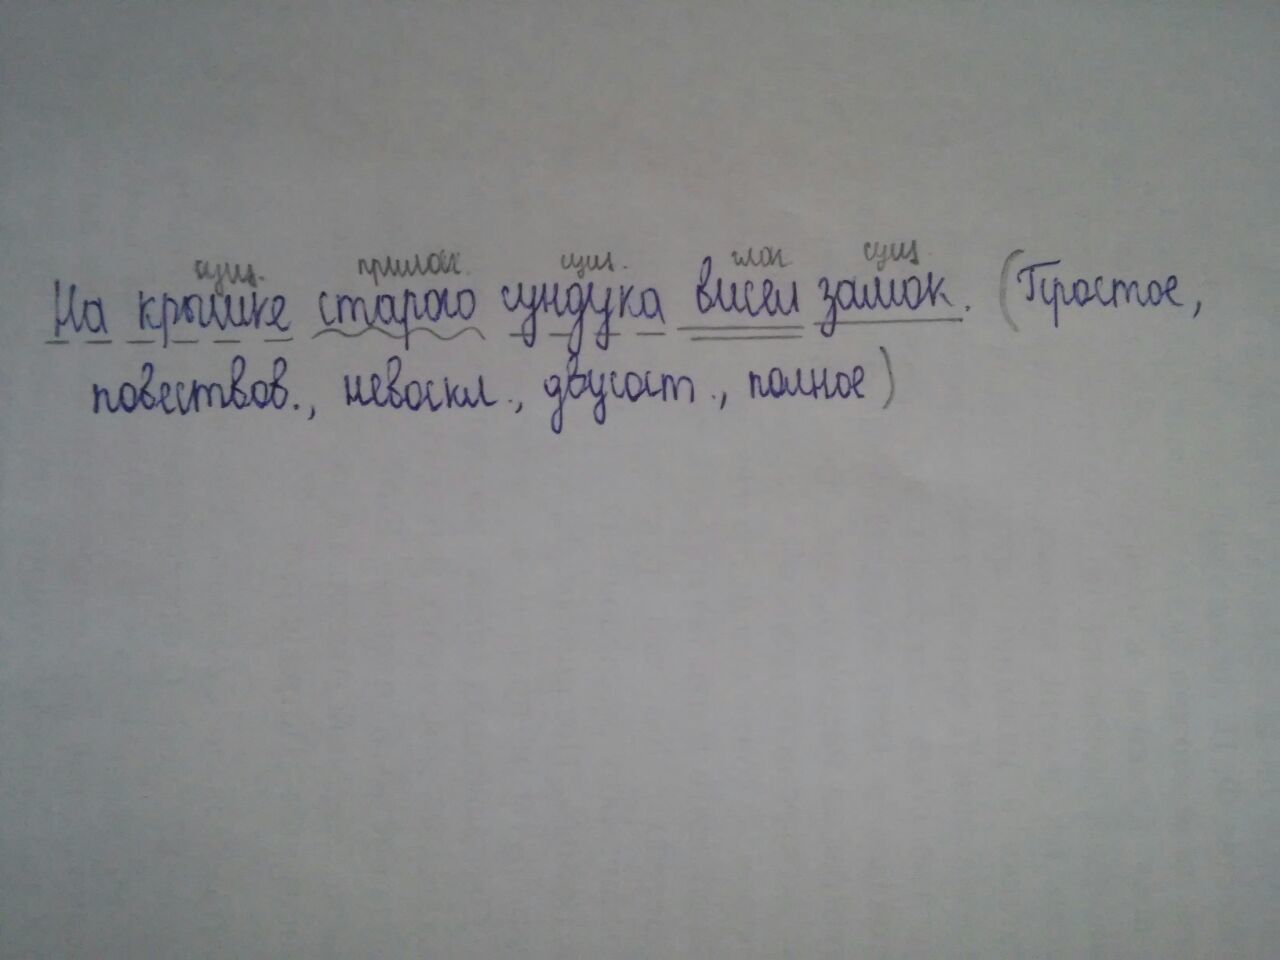 сущ. прилаг. сущ. глаг. сущ.
На крышке старого сундука висел замок. (Простое,
повествов., невоскл., двусост., полное)